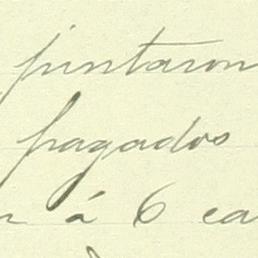 pintaron
pagados
á 6 ca